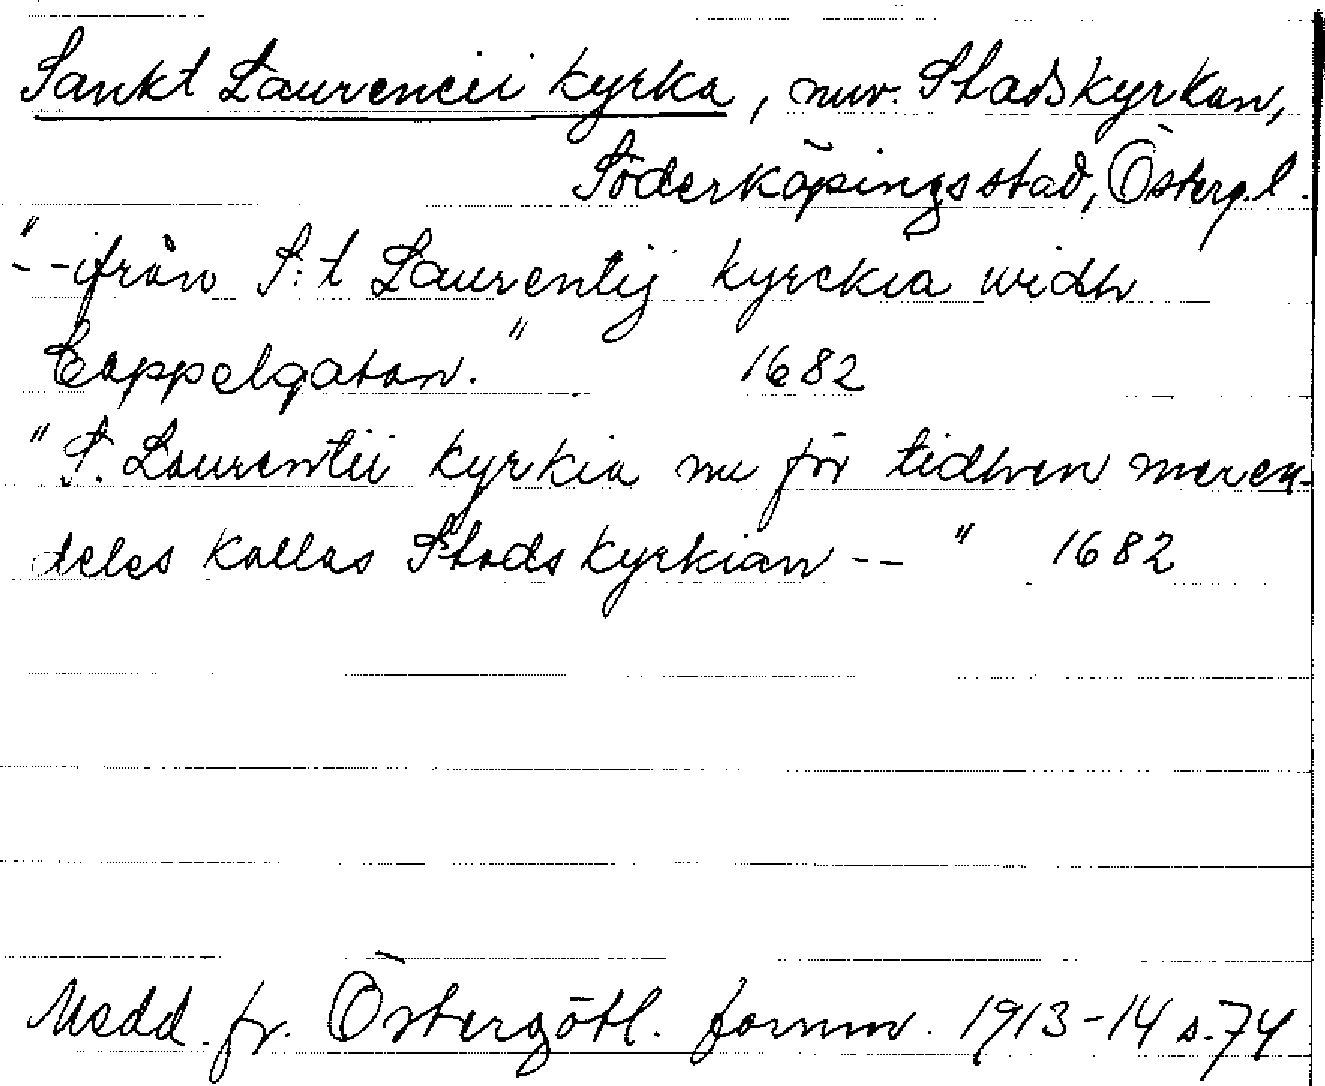 Sankt Laurencii kyrka, nuv. Stadskyrkan,
Söderköpings stad, Östergl.
"- -ifrån S:t Laurentij kyrckia widh
Cappelgatan." 1682
"S. Laurentii kyrkia nu för tidhen meren-
deles kallas Stads kyrkian -- " 1682
Medd. fr. Östergötl. fornm. 1913-14 s.74